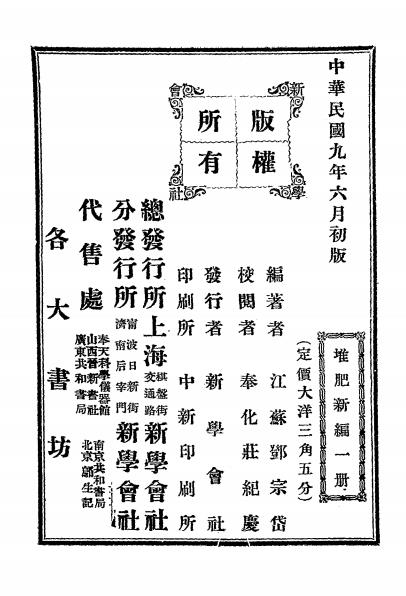 中華民國九年六月初版
新學會社
版權所有
堆肥新編一册
(定價大洋三角五分)
編著者 江蘇鄧宗岱
校閱者 奉化莊紀慶
發行者 新學會社
印刷所 中新印刷所
總發行所 上海 棋盤街 交通路 新學會社
分發行所 甯波日新街 濟南后宰門 新學會社
代售處
奉天科學儀器館
山西晉新書社
廣東共和書局
南京共和書局
北京生記
各大書坊